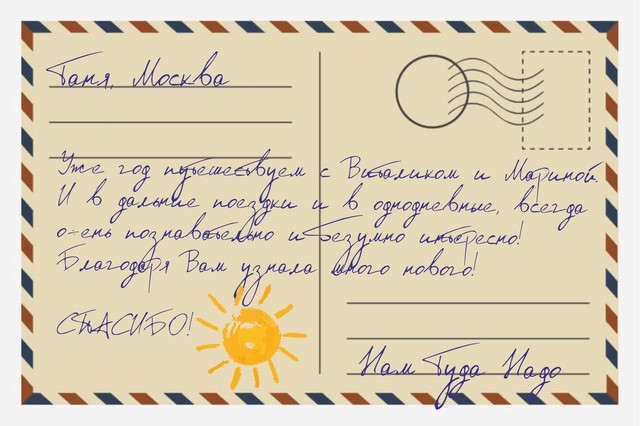 Таня, Москва
Уже год путешествуем с Виталиком и Мариной.
И в дальние поездки и в однодневные, всегда
очень познавательно и безумно интересно!
Благодаря Вам узнала много нового!
СПАСИБО!
Нам Туда Надо